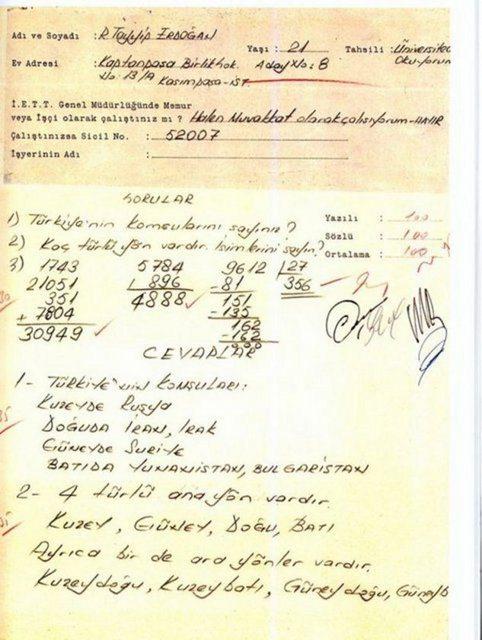 Adı ve Soyadı : R. Tayyip ERDOĞAN
Yaşı : 21 Tahsili : Üniversite Okuyorum
Ev Adresi : Kaptanpaşa Birlik sok. Aday No: 8
No: 13/A Kasımpaşa-İST
İ.E.T.T. Genel Müdürlüğünde Memur
veya İşçi olarak çalıştınız mı ? Halen Muvakkat olarak çalışıyorum - HAYIR
Çalıştınızsa Sicil No. : 52007
İşyerinin Adı :
SORULAR
1) Türkiye'nin komşularını sayınız?
2) Kaç türlü yön vardır. İsimlerini sayın?
Yazılı : 100
Sözlü : 100
Ortalama : 100
3) 1743 5784 9612 27
21051 896 -81 356
351 4888 151
+ 7804 -135
30949 162
-162
000
CEVAPLAR
1- Türkiye'nin Konşuları:
Kuzeyde Rusya
DOĞUDA İRAN, IRAK
GÜNEYDE SURİYE
BATIDA YUNANİSTAN, BULGARİSTAN
2- 4 türlü ana yön vardır.
KUZEY, GÜNEY, DOĞU, BATI
Ayrıca bir de ara yönler vardır.
Kuzeydoğu, Kuzeybatı, Güneydoğu, Güneyb